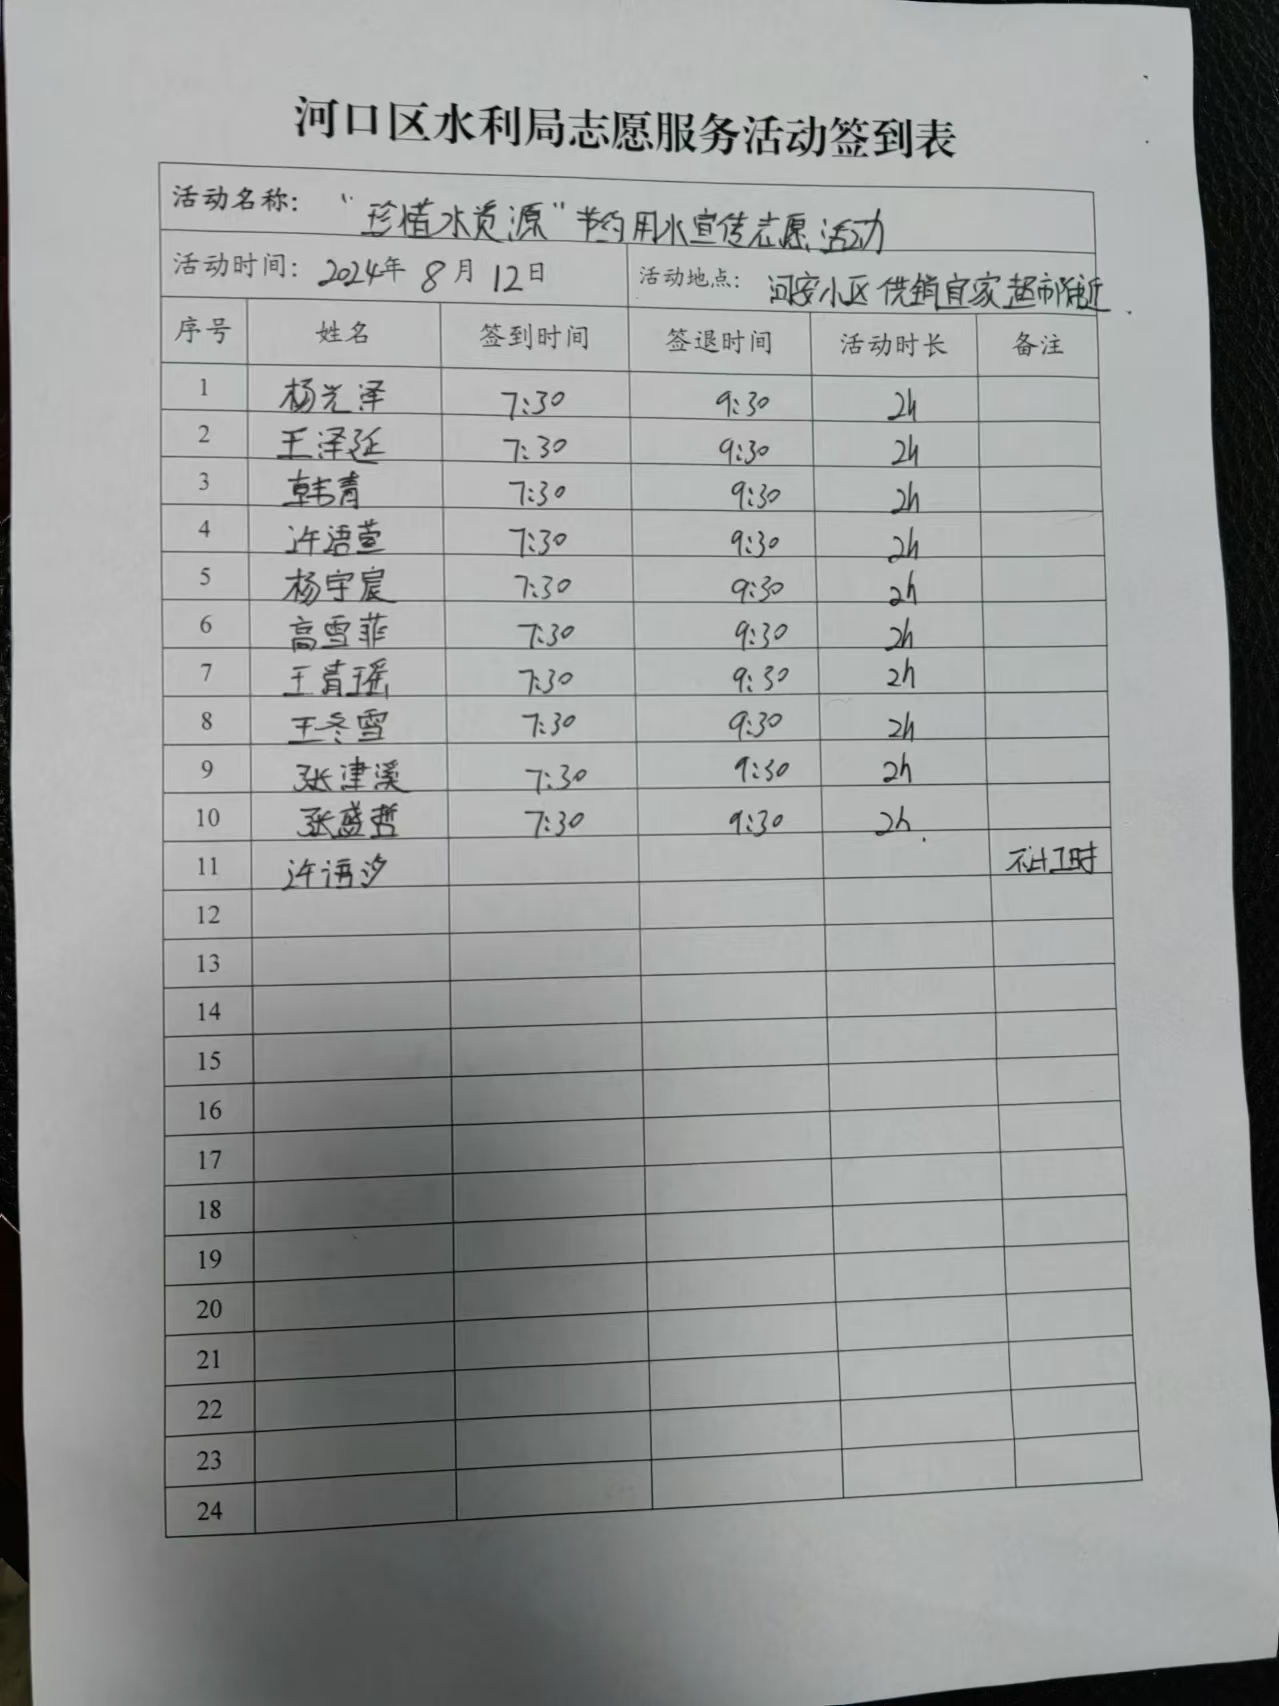 河口区水利局志愿服务活动签到表
活动名称: “珍惜水资源”节约用水宣传志愿活动
活动时间: 2024年 8月 12日 活动地点: 河安小区供销宜家超市附近.
序号 姓名 签到时间 签退时间 活动时长 备注
1 杨光泽 7:30 9:30 2h
2 王泽延 7:30 9:30 2h
3 韩青 7:30 9:30 2h
4 许语萱 7:30 9:30 2h
5 杨宇宸 7:30 9:30 2h
6 高雪菲 7:30 9:30 2h
7 王青瑶 7:30 9:30 2h
8 王冬雪 7:30 9:30 2h
9 张津溪 7:30 9:30 2h
10 张盛哲 7:30 9:30 2h.
11 许语汐 不计工时
12
13
14
15
16
17
18
19
20
21
22
23
24